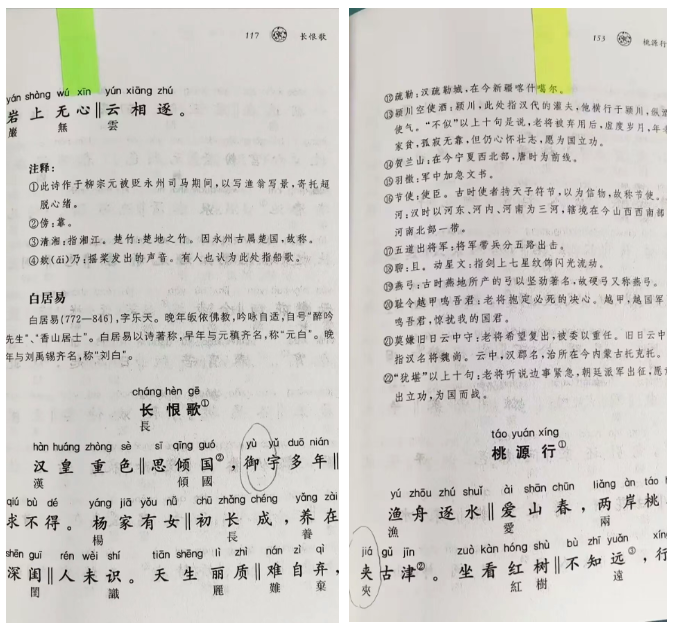 117 长恨歌
yán shàng wú xīn yún xiāng zhú
岩上无心‖云相逐。
巖 無 雲
注释：
①此诗作于柳宗元被贬永州司马期间，以写渔翁写景，寄托超
脱心绪。
②傍：靠。
③清湘：指湘江。楚竹：楚地之竹。因永州古属楚国，故称。
④欸(ǎi)乃：摇桨发出的声音。有人也认为此处指船歌。
白居易
白居易(772—846)，字乐天。晚年皈依佛教，吟咏自适，自号“醉吟
先生”、“香山居士”。白居易以诗著称，早年与元稹齐名，称“元白”。晚
年与刘禹锡齐名，称“刘白”。
cháng hèn gē
长恨歌①
長
hàn huáng zhòng sè sī qīng guó yù yǔ duō nián
汉皇重色‖思倾国②，御宇多年‖
漢 傾 國
qiú bù dé yáng jiā yǒu nǚ chū zhǎng chéng yǎng zài
求不得。杨家有女‖初长成，养在
楊 長 養
shēn guī rén wèi shí tiān shēng lì zhì nán zì qì
深闺‖人未识。天生丽质‖难自弃，
閨 識 麗 難 棄
153 桃源行
⑫疏勒：汉疏勒城，在今新疆喀什噶尔。
⑬颍川空使酒：颍川，此处指汉代的灌夫，他横行于颍川，纵酒
使气。“不似”以上十句是说，老将被弃用后，虚度岁月，年老
家贫，孤寂无靠，但仍心怀壮志，愿为国立功。
⑭贺兰山：在今宁夏西北部，唐时为前线。
⑮羽檄：军中加急文书。
⑯节使：使臣。古时使者持天子符节，以为信物，故称节使。
河：汉时以河东、河内、河南为三河，辖境在今山西西南部
河南北部一带。
⑰五道出将军：将军带兵分五路出击。
⑱聊：且。动星文：指剑上七星纹饰闪光流动。
⑲燕弓：古时燕地所产的弓以坚劲著名，故硬弓又称燕弓。
⑳耻令越甲鸣吾君：老将抱定必死的决心。越甲，越国军
鸣吾君，惊扰我的国君。
㉑莫嫌旧日云中守：老将希望复出，被委以重任。旧日云中
指汉名将魏尚。云中，汉郡名，治所在今内蒙古托克托。
㉒“犹堪”以上十句：老将听说边事紧急，朝廷派军出征，愿
出立功，为国而战。
táo yuán xíng
桃源行①
yú zhōu zhú shuǐ ài shān chūn liǎng àn táo
渔舟逐水‖爱山春，两岸桃
漁 愛 兩
jiá gǔ jīn zuò kàn hóng shù bù zhī yuǎn
夹古津②。坐看红树‖不知远③，行
夾 紅 樹 遠